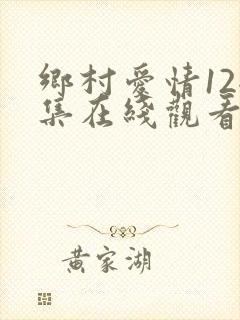 鄉村愛情12
集在綫觀看
黄家湖